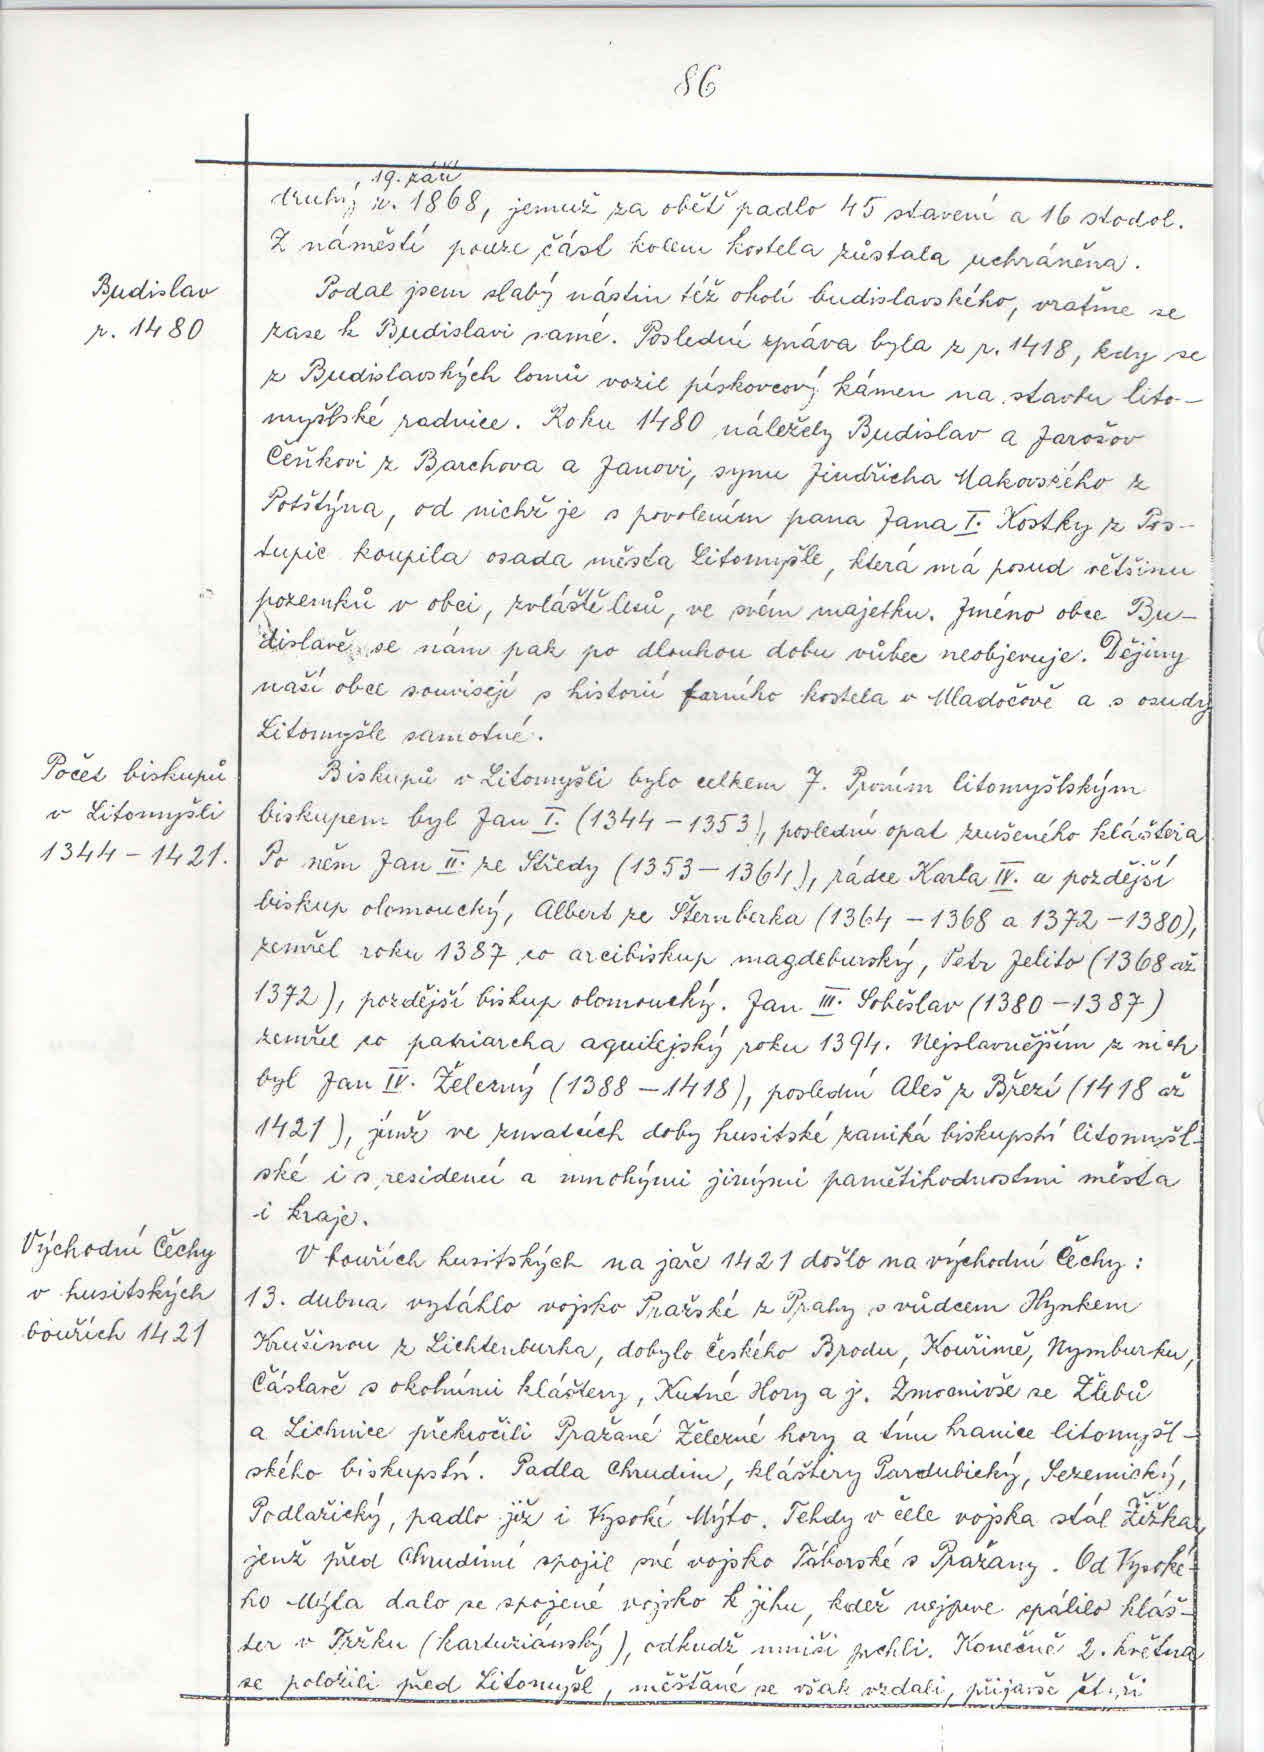 86
19. září
druhý r. 1868, jemuž za oběť padlo 45 stavení a 16 stodol.
Z náměstí pouze část kolem kostela zůstala uchráněna.
Budislav
r. 1480
Podal jsem slabý nástin též okolí budislavského, vraťme se
zase k Budislavi samé. Poslední zpráva byla z r. 1418, kdy se
z Budislavských lomů vozil pískovcový kámen na stavbu lito-
myšlské radnice. Roku 1480 náležely Budislav a Jarošov
Čeňkovi z Barchova a Janovi, synu Jindřicha Makovského z
Potštýna, od nichž je s povolením pana Jana I. Kostky z Pos-
tupic koupila osada města Litomyšle, která má posud většinu
pozemků v obci, zvláště lesů, ve svém majetku. Jméno obce Bu-
dislavě se nám pak po dlouhou dobu vůbec neobjevuje. Dějiny
naší obce souvisejí s historií farního kostela v Mladočově a s osudy
Litomyšle samotné.
Počet biskupů
v Litomyšli
1344 - 1421.
Biskupů v Litomyšli bylo celkem 7. Prvním litomyšlským
biskupem byl Jan I. (1344 - 1353), poslední opat zrušeného kláštera.
Po něm Jan II. ze Středy (1353 - 1364), rádce Karla IV. a pozdější
biskup olomoucký, Albert ze Šternberka (1364 - 1368 a 1372 - 1380),
zemřel roku 1387 co arcibiskup magdeburský, Petr Jelito (1368 až
1372), pozdější biskup olomoucký. Jan III. Soběslav (1380 - 1387)
zemřel co patriarcha aquilejský roku 1394. Nejslavnějším z nich
byl Jan IV. Železný (1388 - 1418), poslední Aleš z Březí (1418 až
1421), jímž ve zmatcích doby husitské zaniká biskupství litomyšl-
ské i s residencí a mnohými jinými pamětihodnostmi města
i kraje.
Východní Čechy
v husitských
bouřích 1421
V bouřích husitských na jaře 1421 došlo na východní Čechy:
13. dubna vytáhlo vojsko Pražské z Prahy s vůdcem Hynkem
Krušinou z Lichtenburka, dobylo Českého Brodu, Kouřimě, Nymburku,
Čáslavě s okolními kláštery, Kutné Hory a j. Zmocnivše se Žlebů
a Lichnice překročili Pražané Železné hory a tím hranice litomyšl-
ského biskupství. Padla Chrudim, kláštery Pardubický, Sezemický,
Podlažický, padlo již i Vysoké Mýto. Tehdy v čele vojska stál Žižka,
jenž před Chrudimí spojil své vojsko Táborské s Pražany. Od Vysoké-
ho Mýta dalo se spojené vojsko k jihu, kdež nejprve spálilo kláš-
ter v Tržku (kartuziánský), odkudž mniši prchli. Konečně 2. května
se položili před Litomyšl, měšťané se však vzdali, přijavše čtyři